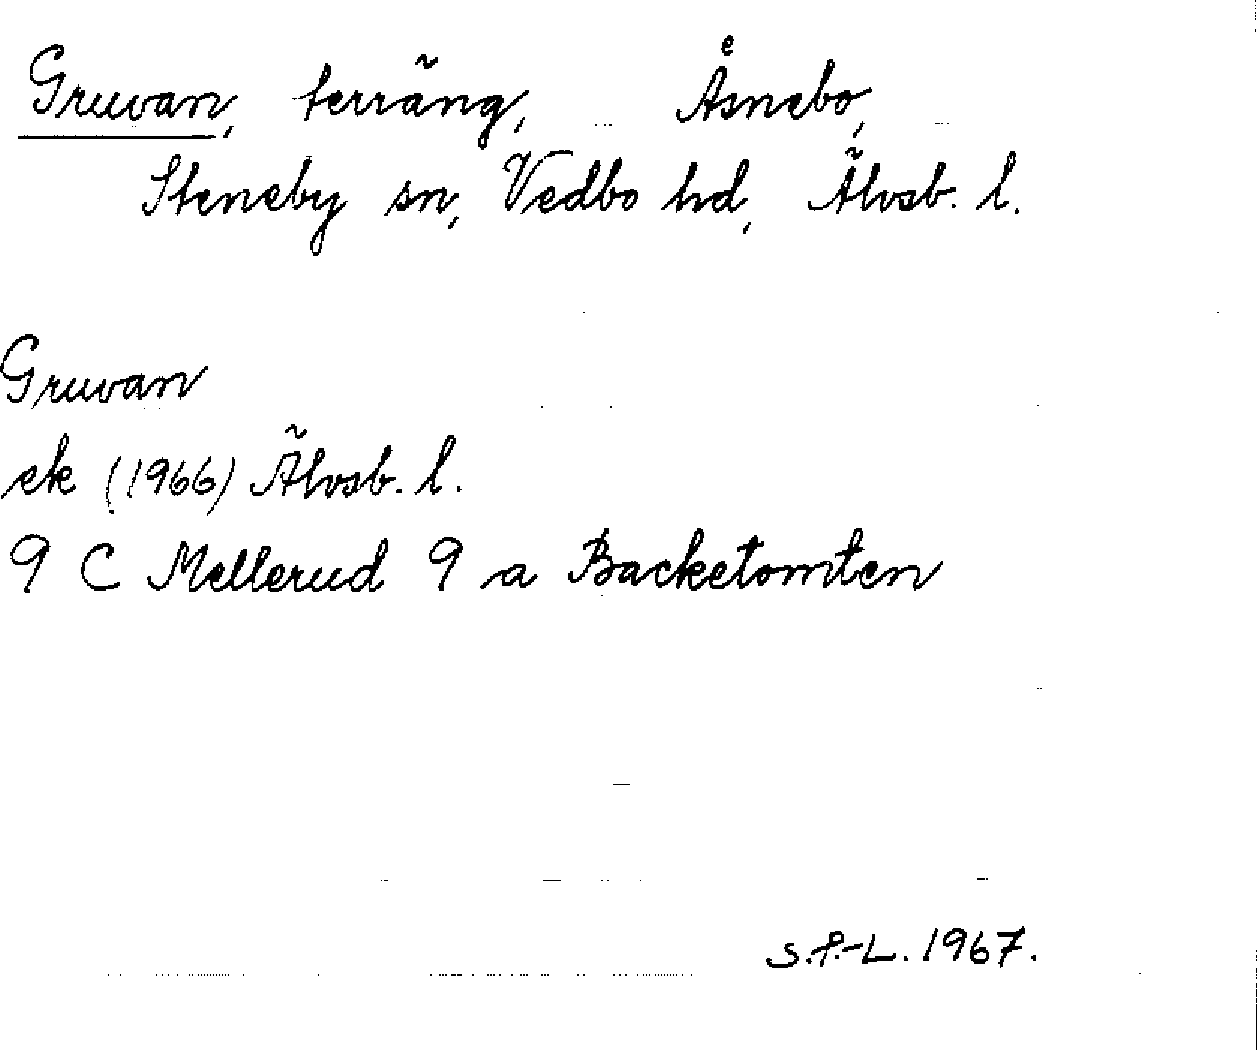 Gruvan, terräng, Åsnebo,
Steneby sn, Vedbo hd, Älvsb. l.
Gruvan
ek (1966) Älvsb. l.
9 C Mellerud 9 a Backetomten
S.P-L. 1967.